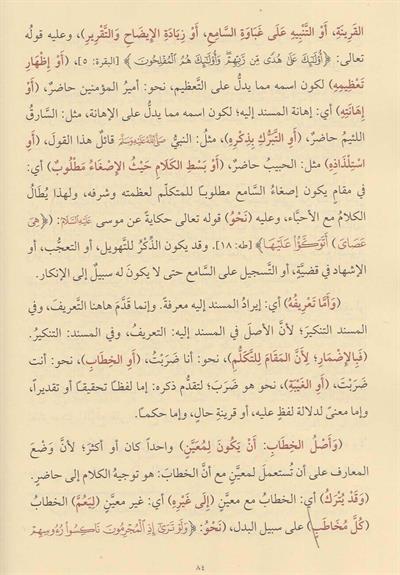 القَرِينَةِ، أَوْ التَّنْبِيهِ عَلَى غَبَاوَةِ السَّامِعِ، أَوْ زِيَادَةِ الإِيضَاحِ وَالتَّقْرِيرِ)، وعليه قولُه
تعالى: ﴿أُوْلَٰٓئِكَ عَلَىٰ هُدًى مِّن رَّبِّهِمْ ۖ وَأُوْلَٰٓئِكَ هُمُ ٱلْمُفْلِحُونَ﴾ [البقرة: ٥]، (أَوْ إِظْهَارِ
تَعْظِيمِهِ) لكون اسمه مما يدلُّ على التَّعظيم، نحو: أميرُ المؤمنين حاضرٌ، (أَوْ
إِهَانَتِهِ) أي: إهانة المسند إليه؛ لكون اسمه مما يدلُّ على الإهانة، مثل: السَّارقُ
اللئيمُ حاضرٌ، (أَوِ التَّبَرُّكِ بِذِكْرِهِ)، مثلُ: النبيُّ ﷺ قائلُ هذا القولَ، (أَوِ
اسْتِلْذَاذِهِ) مثل: الحبيبُ حاضرٌ، (أَوْ بَسْطِ الكَلَامِ حَيْثُ الإِصْغَاءُ مَطْلُوبٌ) أي:
في مقامٍ يكون إصغاءُ السامع مطلوباً للمتكلّم لعظمته وشرفه، ولهذا يُطَالُ
الكلامُ مع الأحبَّاء، وعليه (نَحْوُ) قوله تعالى حكايةً عن موسى عليه السلام: (﴿هِىَ
عَصَاىَ﴾ ﴿أَتَوَكَّؤُاْ عَلَيْهَا﴾) [طه: ١٨]. وقد يكون الذِّكْرُ للتَّهويل، أو التعجُّب، أو
الإشهاد في قضيَّةٍ، أو التَّسجيل على السَّامع حتى لا يكونَ له سبيلٌ إلى الإنكار.
(وَأَمَّا تَعْرِيفُهُ) أي: إيرادُ المسند إليه معرفةً. وإنما قدَّمَ هاهنا التَّعريفَ، وفي
المسند التنكيرَ؛ لأنَّ الأصلَ في المسند إليه: التعريفُ، وفي المسند: التنكيرُ.
(فَبِالإِضْمَارِ؛ لِأَنَّ المَقَامَ لِلتَّكَلُّمِ)، نحو: أنا ضَرَبْتُ، (أَوِ الخِطَابِ)، نحو: أنت
ضَرَبْتَ، (أَوِ الغَيْبَةِ)، نحو هو ضَرَبَ؛ لتقدُّم ذكره: إما لفظاً تحقيقاً أو تقديراً،
وإما معنىً لدلالة لفظٍ عليه، أو قرينةِ حالٍ، وإما حكماً.
(وَأَصْلُ الخِطَابِ: أَنْ يَكُونَ لِمُعَيَّنٍ) واحداً كان أو أكثرَ؛ لأنَّ وَضْعَ
المعارف على أن تُستعملَ لمعيَّنٍ مع أنَّ الخطابَ: هو توجيهُ الكلام إلى حاضرٍ.
(وَقَدْ يُتْرَكُ) أي: الخطابُ مع معيَّنٍ (إِلَى غَيْرِهِ) أي: غير معيَّنٍ (لِيَعُمَّ) الخطابُ
(كُلَّ مُخَاطَبٍ) على سبيل البدل، (نَحْوُ: ﴿وَلَوْ تَرَىٰٓ إِذِ ٱلْمُجْرِمُونَ نَاكِسُواْ رُءُوسِهِمْ
٨٤